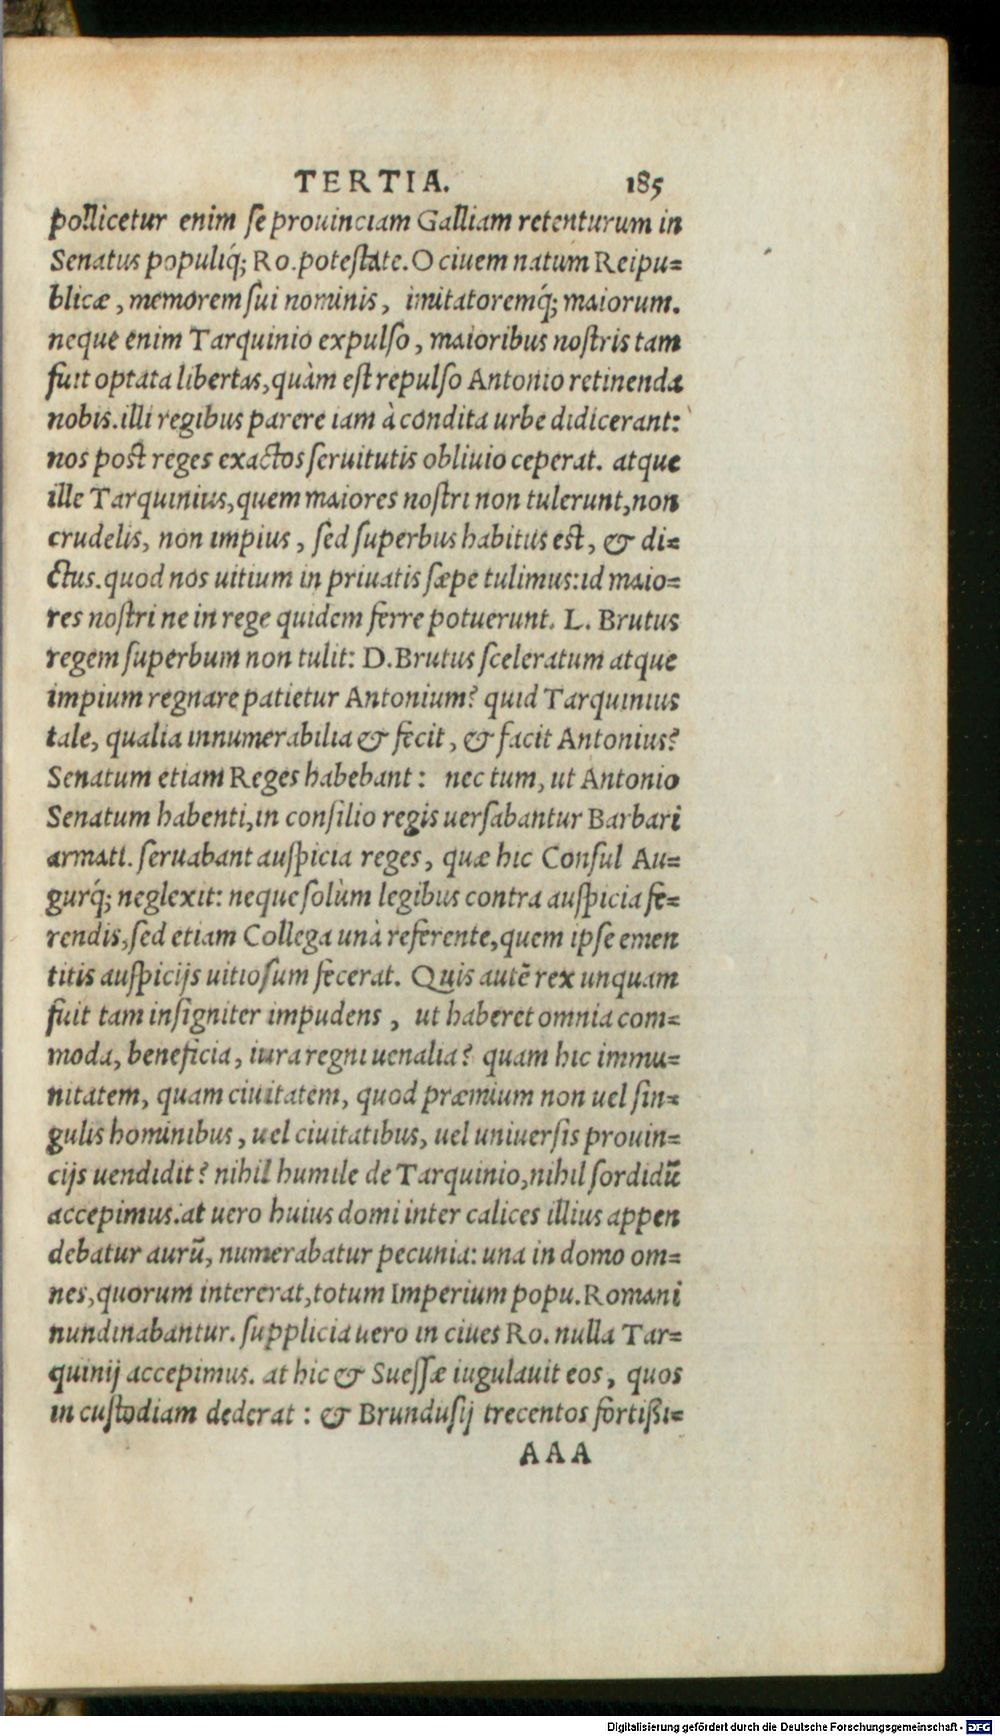 TERTIA. 185
pollicetur enim se prouinciam Galliam retenturum in
Senatus populiq́; Ro. potestate. O ciuem natum Reipu=
blicæ, memorem sui nominis, imitatoremq́; maiorum.
neque enim Tarquinio expulso, maioribus nostris tam
fuit optata libertas, quàm est repulso Antonio retinenda
nobis. illi regibus parere iam à condita urbe didicerant:
nos post reges exactos seruitutis obliuio ceperat. atque
ille Tarquinius, quem maiores nostri non tulerunt, non
crudelis, non impius, sed superbus habitus est, & di=
ctus. quod nos uitium in priuatis sæpe tulimus: id maio=
res nostri ne in rege quidem ferre potuerunt. L. Brutus
regem superbum non tulit: D. Brutus sceleratum atque
impium regnare patietur Antonium? quid Tarquinius
tale, qualia innumerabilia & fecit, & facit Antonius?
Senatum etiam Reges habebant: nec tum, ut Antonio
Senatum habenti, in consilio regis uersabantur Barbari
armati. seruabant auspicia reges, quæ hic Consul Au=
gurq́; neglexit: neque solùm legibus contra auspicia fe=
rendis, sed etiam Collega unà referente, quem ipse emen
titis auspicijs uitiosum fecerat. Quis autē rex unquam
fuit tam insigniter impudens, ut haberet omnia com=
moda, beneficia, iura regni uenalia? quam hic immu=
nitatem, quam ciuitatem, quod præmium non uel sin=
gulis hominibus, uel ciuitatibus, uel uniuersis prouin=
cijs uendidit? nihil humile de Tarquinio, nihil sordidū
accepimus. at uero huius domi inter calices illius appen
debatur aurū, numerabatur pecunia: una in domo om=
nes, quorum intererat, totum Imperium popu. Romani
nundinabantur. supplicia uero in ciues Ro. nulla Tar=
quinij accepimus. at hic & Suessæ iugulauit eos, quos
in custodiam dederat: & Brundusij trecentos fortißi=
AAA
Digitalisierung gefördert durch die Deutsche Forschungsgemeinschaft - DFG